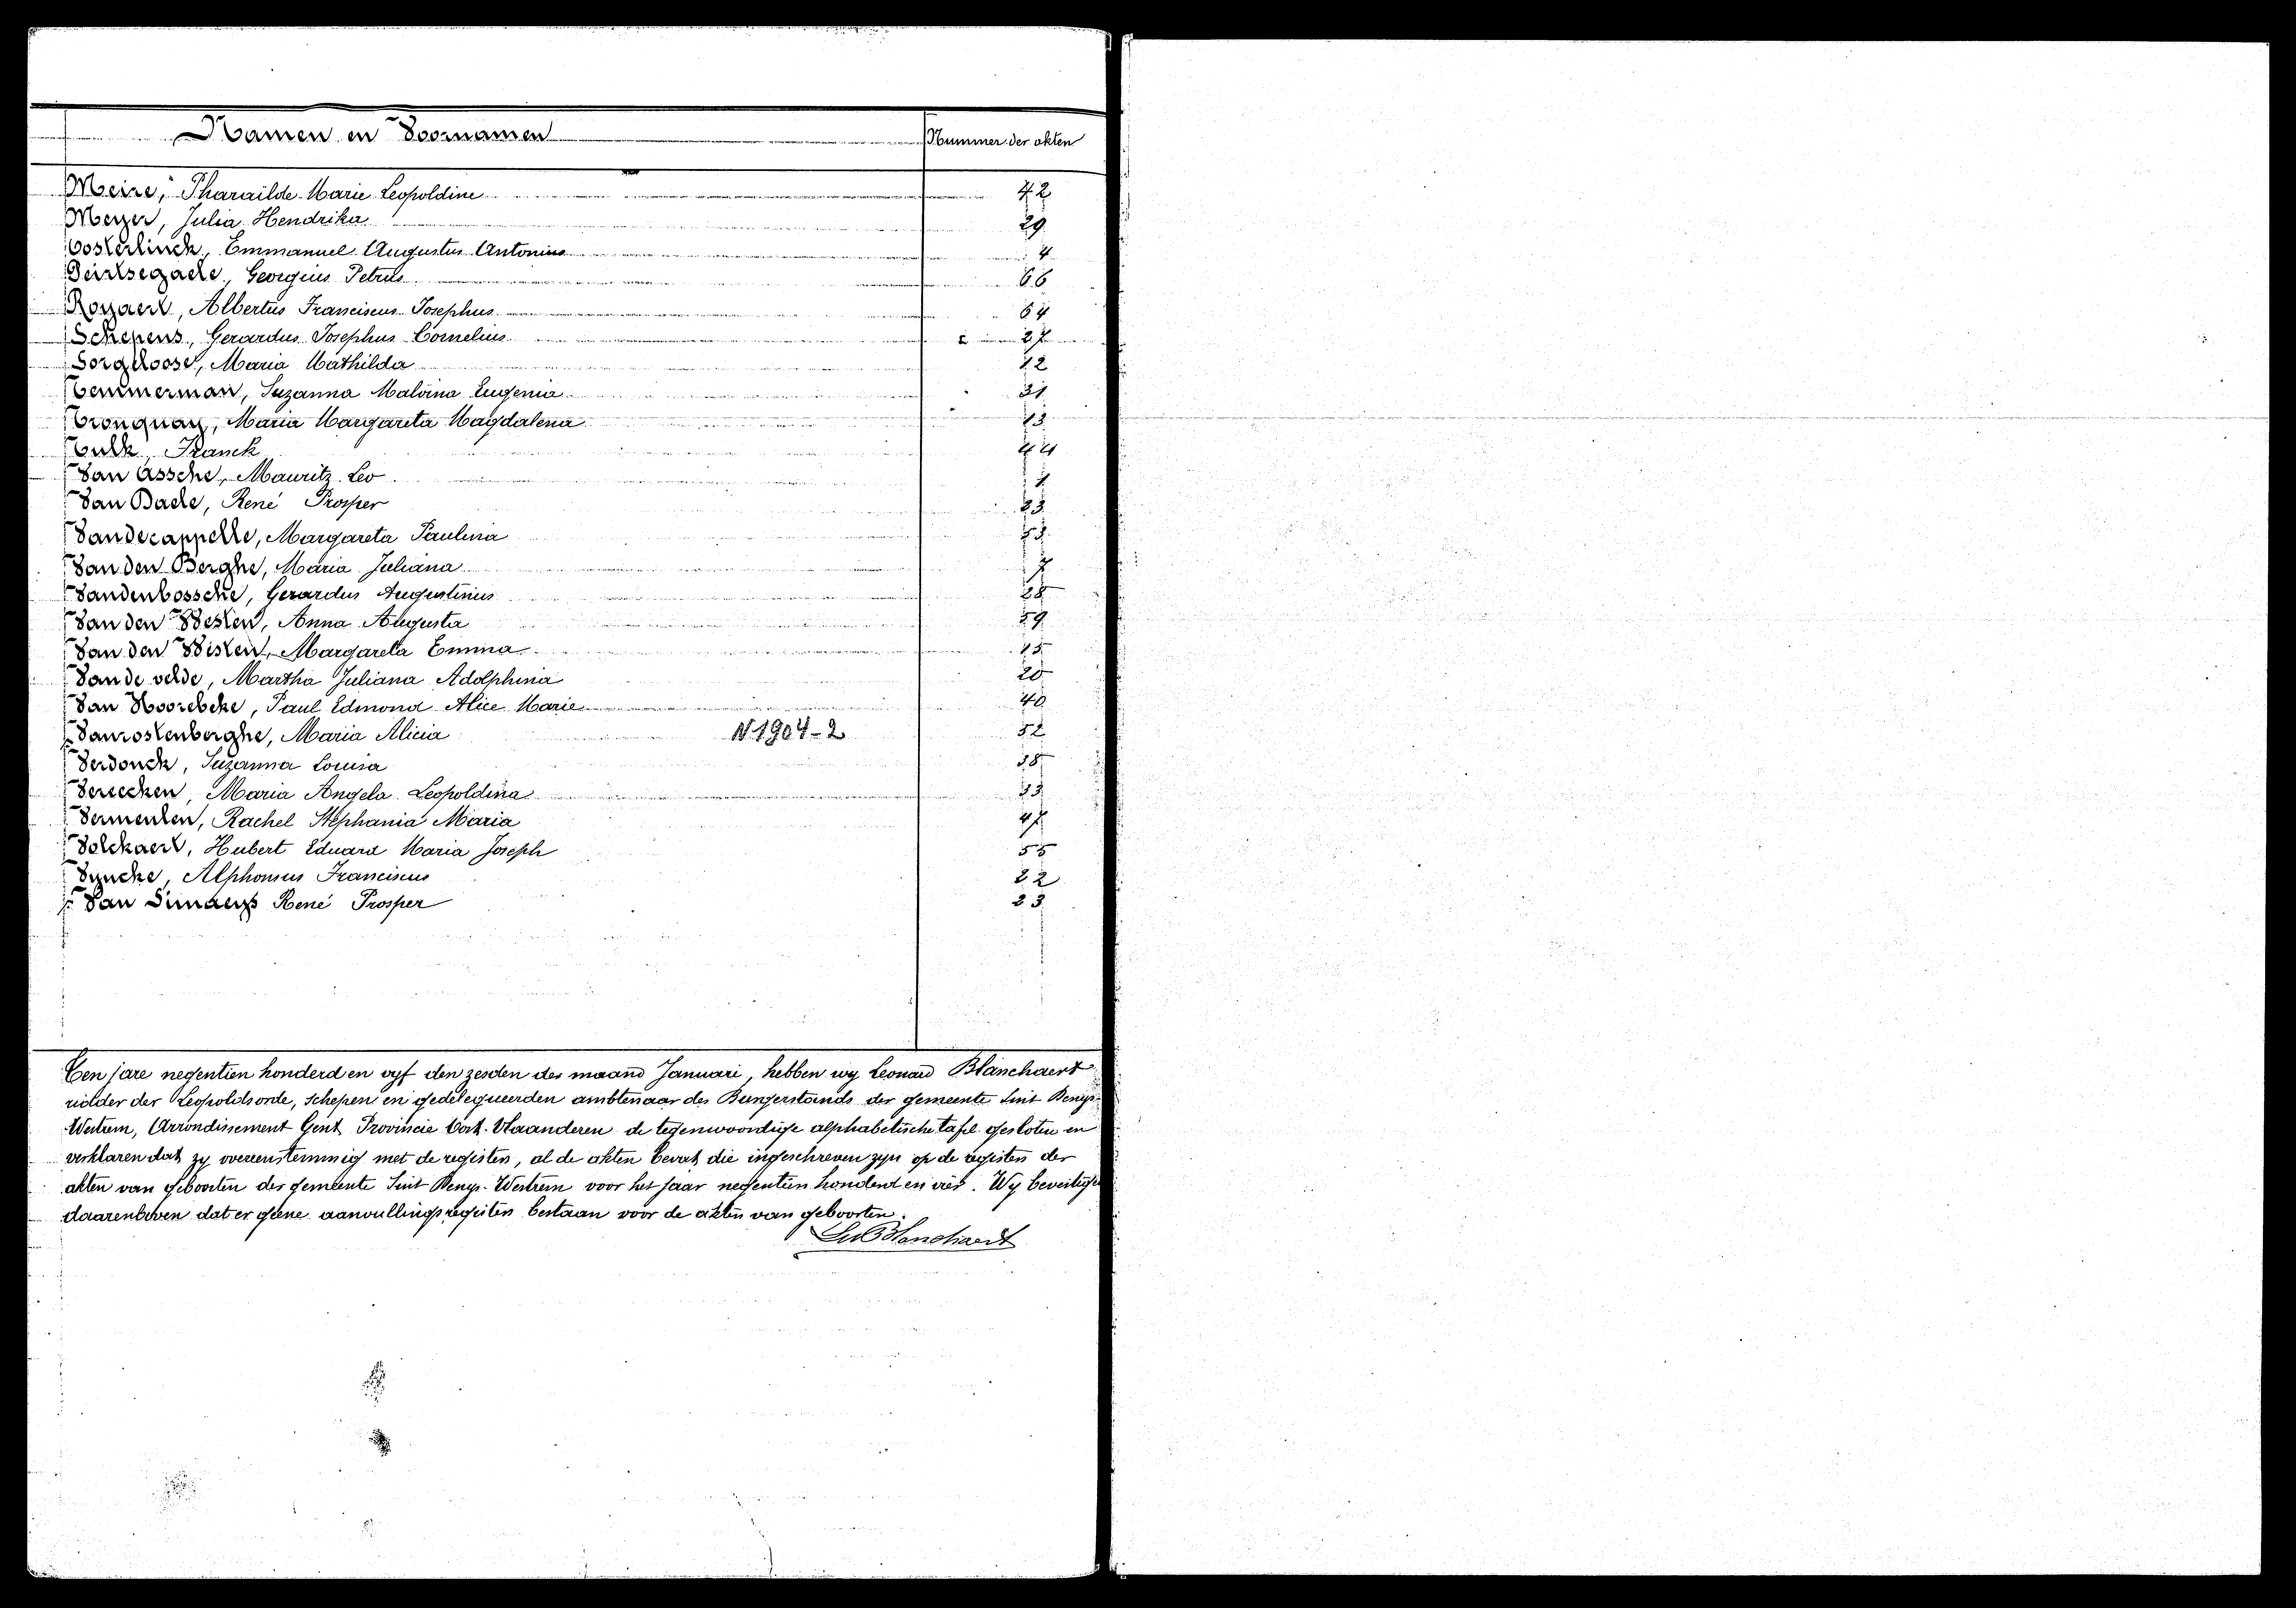 Namen en Voornamen Nummer der akten
Meire, Pharaïlde Marie Leopoldine 42
Meyer, Julia Hendrika 29
Oosterlinck, Emmanuel Augustus Antonius 4
Peirtsegaele, Georgius Petrus 66
Royaert, Albertus Franciscus Josephus 64
Schepens, Gerardus Josephus Cornelius 27
Sorgeloose, Maria Mathilda 12
Temmerman, Suzanna Malvina Eugenia 31
Tronquay, Maria Margareta Magdalena 13
Tulk, Franck 44
Van Assche, Mauritz Leo 1
Van Daele, René Prosper 23
Vandecappelle, Margareta Paulina 53
Van den Berghe, Maria Juliana 7
Vandenbossche, Gerardus Augustinus 28
Van den Besten, Anna Augusta 59
Van den Bisten, Margareta Emma 15
Van de velde, Martha Juliana Adolphina 20
Van Hoorebeke, Paul Edmond Alice Marie 40
Vanrostenberghe, Maria Alicia N 1904-2 52
Verdonck, Suzanna Louisa 38
Vereecken, Maria Angela Leopoldina 33
Vermeulen, Rachel Stephania Maria 47
Volckaert, Hubert Eduard Maria Joseph 55
Vyncke, Alphonsus Franciscus 22
Van Simaeys René Prosper 23
Ten jare negentien honderd en vyf den zesden der maand Januari, hebben wy Leonard Blanchaert
ridder der Leopoldsorde, schepen en gedelegueerden ambtenaar des Burgerstands der gemeente Sint Denys-
Westrem, Arrondissement Gent, Provincie Oost-Vlaanderen de tegenwoordige alphabetische tafel gesloten en
verklaren dat zy overeenstemmig met de registen, al de akten bevat die ingeschreven zyn op de registen der
akten van geboorten der gemeente Sint Denys-Westrem voor het jaar negentien honderd en vier. Wy bevestigen
daarenboven dat er geene aanvullingsregisters bestaan voor de akten van geboorten.
Blanchaert